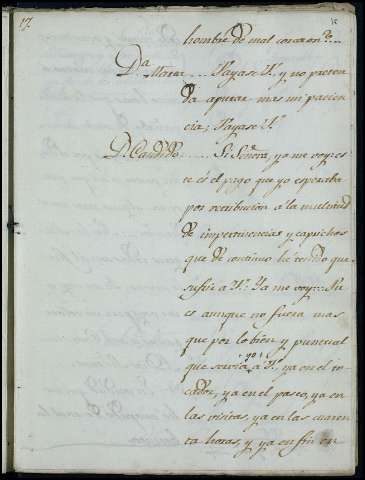 17.
hombre de mal corazon....
D.a Maria.... Vayase V. y no preten
da apurar mas mi pacien
cia; Vayase V.
D.n Candido...... Si Señora, ya me voy: es
te és el pago que yo esperaba
por retribucion à la multitud
de impertinencias y caprichos
que de continuo he tenido que
sufrir à V.: Ya me voy:.. Pu
es aunque no fuera mas
que por lo bien y puntual
que servia yo à V. ya en el
cador, ya en el paseo, ya en
las visitas, ya en las cuaren
ta horas, y ya en fin en